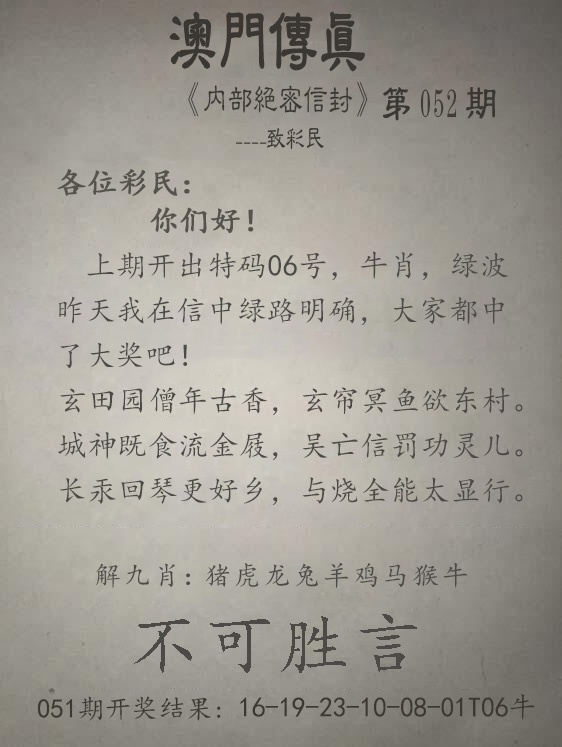 澳門傳真
《内部絕密信封》第052期
----致彩民
各位彩民：
你们好！
上期开出特码06号，牛肖，绿波
昨天我在信中绿路明确，大家都中
了大奖吧！
玄田园僧年古香，玄帘冥鱼欲东村。
城神既食流金屐，吴亡信罚功灵儿。
长汞回琴更好乡，与烧全能太显行。
解九肖：猪虎龙兔羊鸡马猴牛
不可胜言
051期开奖结果：16-19-23-10-08-01T06牛